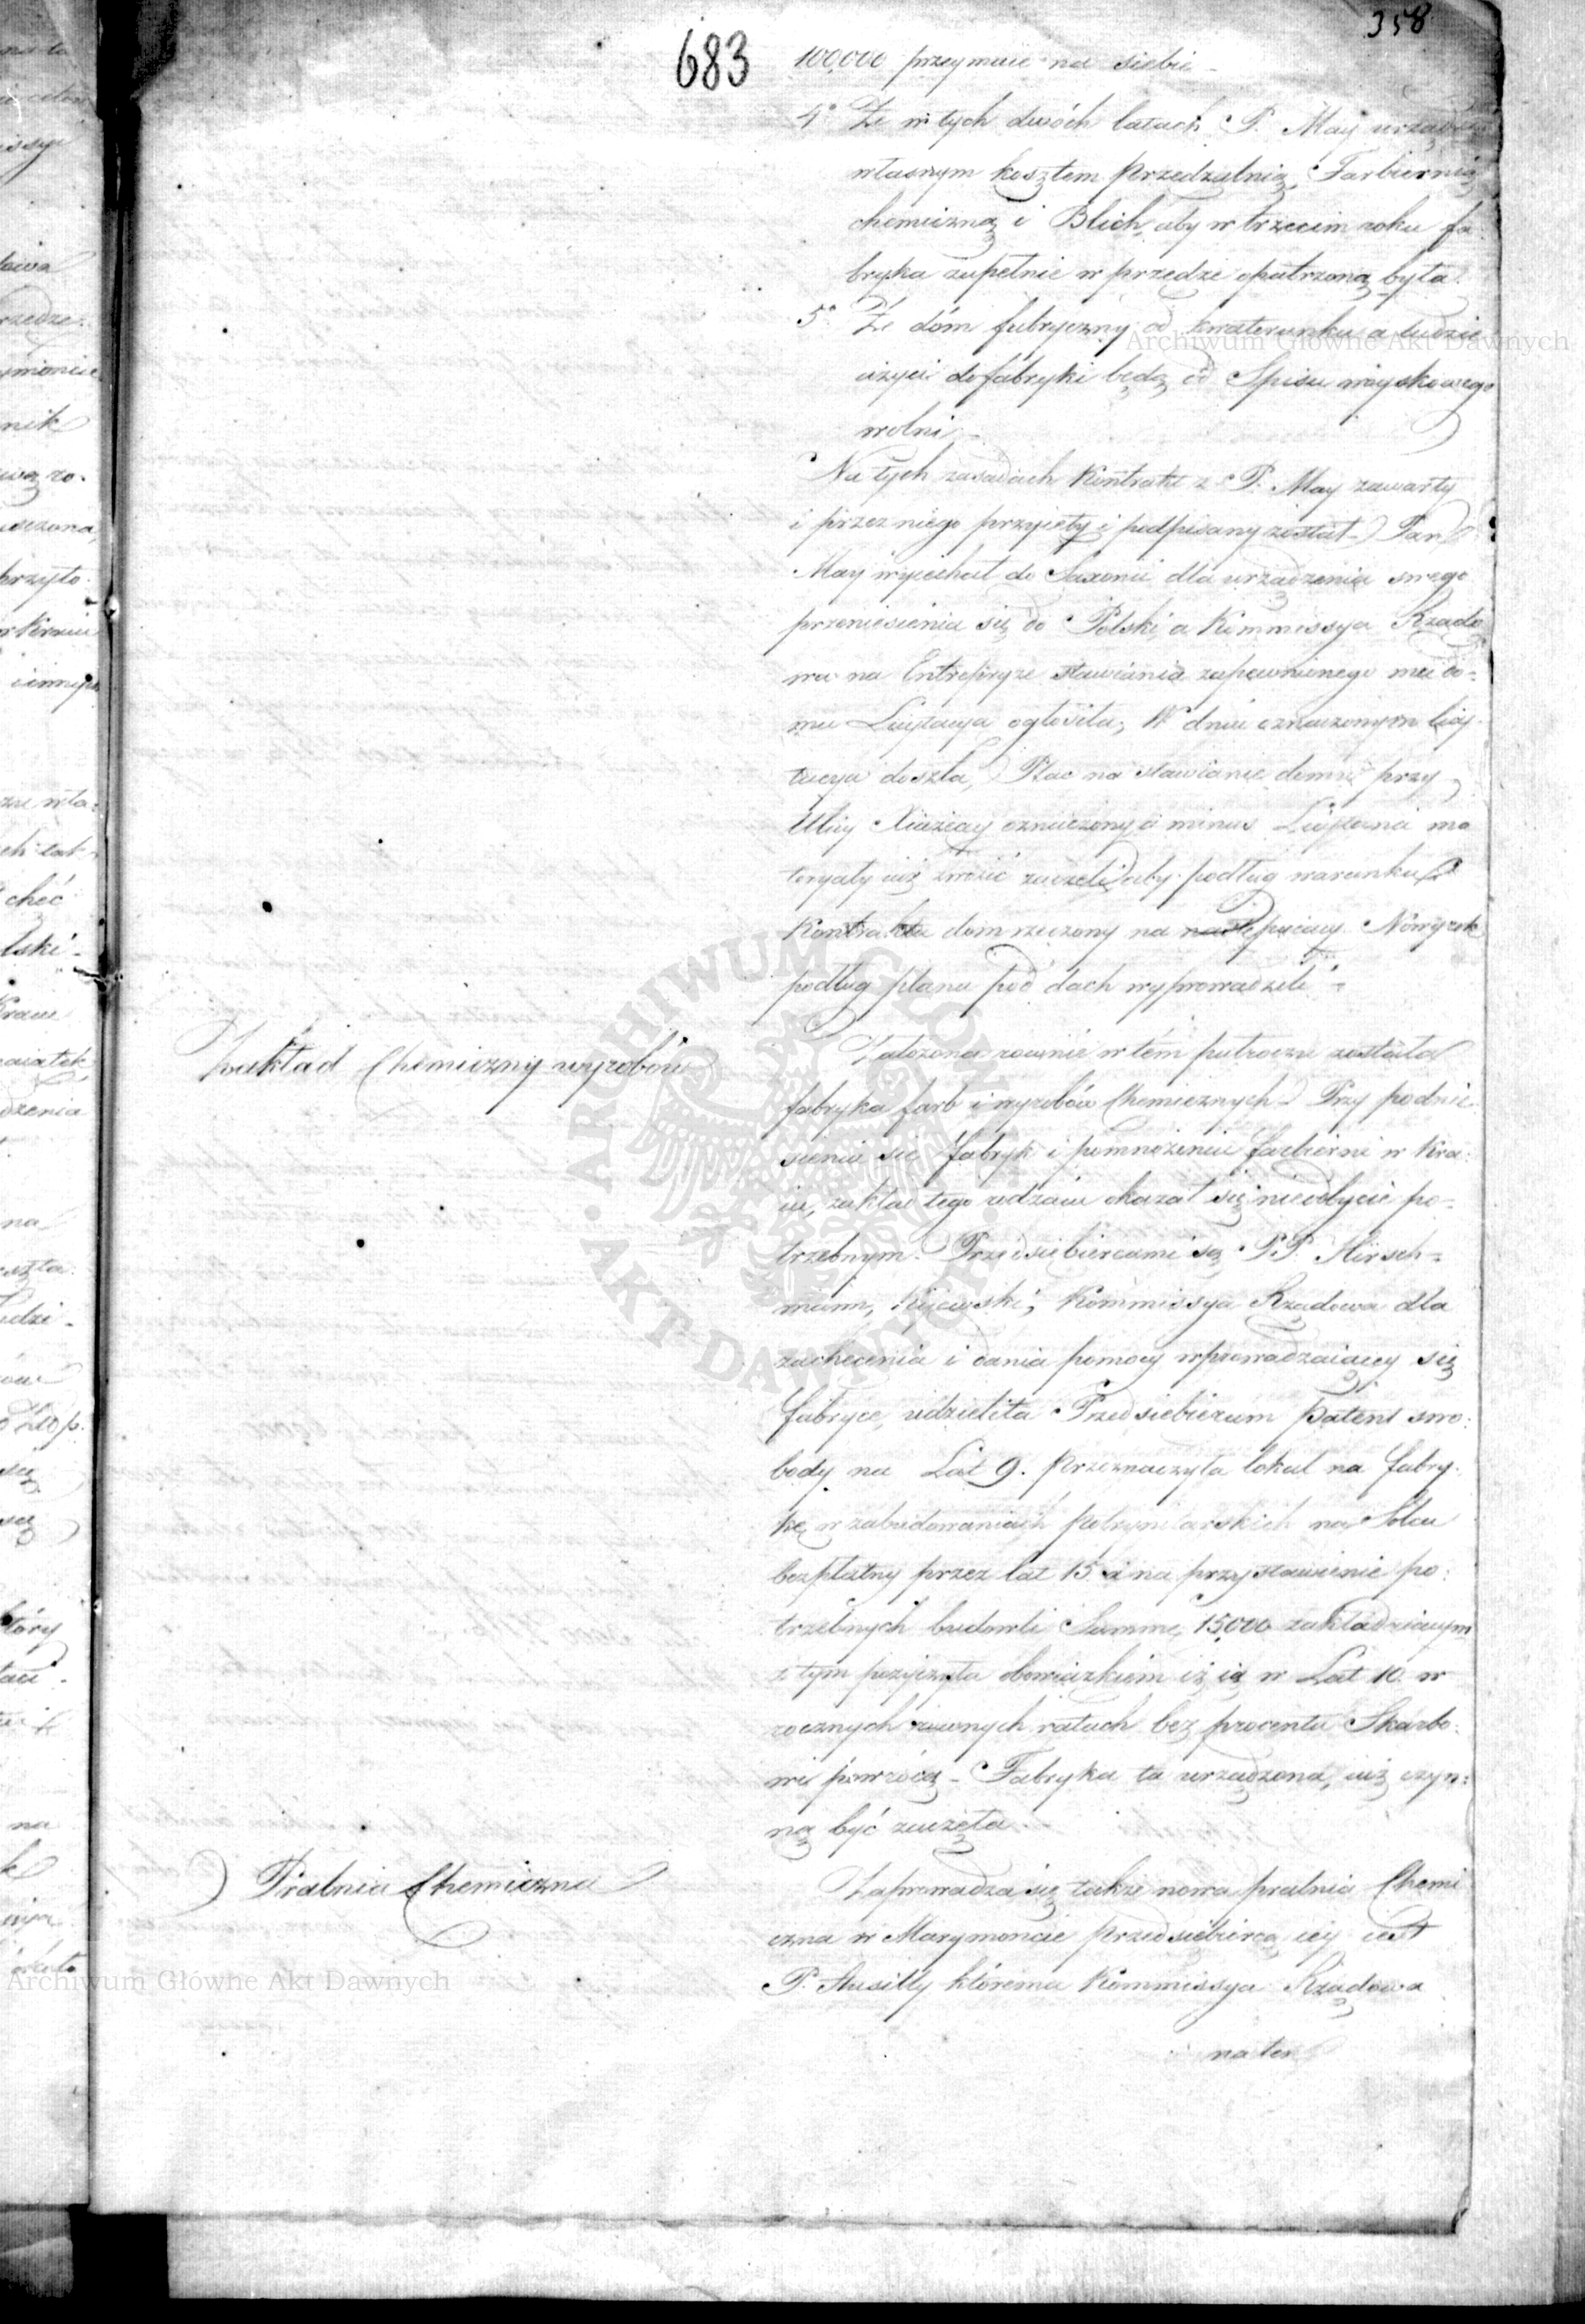 358
683
100,000 przeymuie na siebie
4° Że w tych dwóch latach P. May urządzi
własnym kosztem Przędzalnią, Farbiernią
chemiczną i Blich, aby w trzecim roku fa
bryka zupełnie w przędze opatrzoną była.
5° Że dóm fabryczny od kwaterunku a ludzie
użyci do fabryki będą od Spisu woyskowego
wolni
Na tych zasadach Kontrakt z P. May zawarty
i przez niego przyięty i podpisany został. Pan
May wyiechał do Saxonii dla urządzenia swego
przeniesienia się do Polski a Kommissya Rządo
wa na Entrepryze stawiania zapewnionego mu do=
mu Licytacya ogłosiła, W dniu oznaczonym licy
tacya doszła, Plac na stawianie domu przy
Ulicy Xiążęcey oznaczony a minus Licytanci ma
teryały już zwozić zaczeli aby podług warunku
Kontraktu dom rzeczony na następuiący Nowy rok
podług planu pod dach wyprowadzili
Zakład Chemiczny wyrobów
Założona rownie w tém półroczu została
fabryka farb i wyrobów Chemicznych. Przy podnie
sieniu się fabryk i pomnożeniu farbierni w Kra
iu, zakład tego rodzaiu okazał się nieodbycie po=
trzebnym. Przedsiębiercami są P.P. Hirsch=
mann, Kijewski; Kommissya Rządowa dla
zachęcenia i dania pomocy wprowadzaiącey się
fabryce, udzieliła Przedsiebiercom patent swo:
body na Lat 9. Przeznaczyła lokal na fabry
kę w zabudowaniach na Solcu
bezpłatny przez lat 15 a na przystawienie po:
trzebnych budowli Summe 15000 zakładaiącym
z tym pożyczyła obowiązkiem iż ią w Lat 10. w
rocznych równych ratach bez procentu Skarbo=
wi powrócą - Fabryka ta urządzona, iuż czyn:
ną być zaczęła
Pralnia Chemiczna
Zaprowadza się także nowa pralnia Chemi
czna w Marymoncie przedsiębircą iey iest
P. któremu Kommissya Rządowa
na ten
Archiwum Główne Akt Dawnych
Archiwum Główne Akt Dawnych
ARCHIWUM GŁÓWNE AKT DAWNYCH